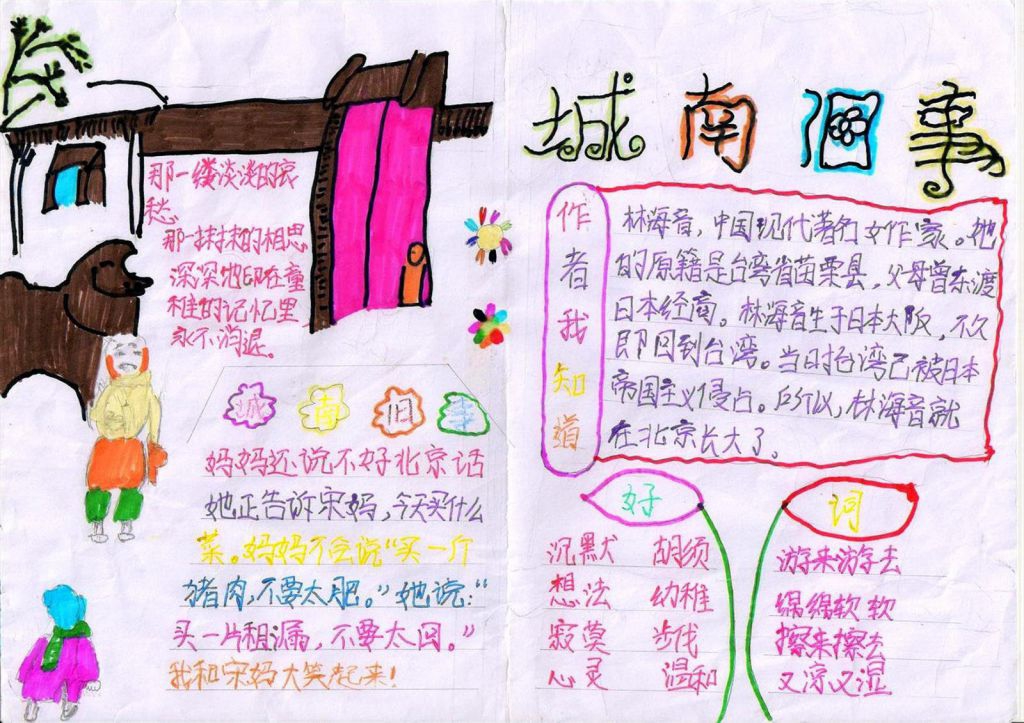 城南個事
那一缕淡淡的哀
愁
那一抹抹的相思
深深地印在童
稚的记忆里
永不消退。
城南旧事
妈妈还说不好北京话
她正告诉宋妈,今天买什么
菜。妈妈不会说“买一斤
猪肉,不要太肥。”她说:“
买一片租漏,不要太回。”
我和宋妈大笑起来!
作者我知道
林海音,中国现代著名女作家。她
的原籍是台湾省苗栗县,父母曾东渡
日本经商。林海音生于日本大阪,不久
即回到台湾。当时台湾已被日本
帝国主义侵占。所以,林海音就
在北京长大了。
好词
沉默 胡须 游来游去
想法 幼稚 绵绵软软
寂莫 步伐 擦来擦去
心灵 温和 又凉又湿